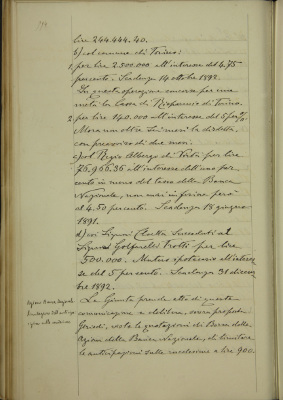 lire 244.444.40.
b) col comune di Torino:
per lire 2.500.000 all'interesse del 4.75
percento. Scadenza 14 ottobre 1892.
In questa operazione concorre per una
metà la Cassa di Risparmio di Torino.
per lire 140.000 all'interesse del 5 per %
con preavviso di due mesi.
c) col Regio Albergo di Virtù per lire
76.966.36 all'interesse dell'uno per
cento in meno del tasso della Banca
Nazionale, non mai inferiore però
al 4.50 percento. Scadenza 18 giugno
1891.
d) coi Signori
Signori Trotti per lire
500.000. Mutuo ipotecario all'interes
se del 5 percento. Scadenza 31 dicem
bre 1892.
La Giunta prende atto di queste
comunicazioni e delibera, sovra proposta
vista la quotazione di Borsa delle
Azioni della Banca Nazionale, di limitare
le anticipazioni sulle medesime a lire 900